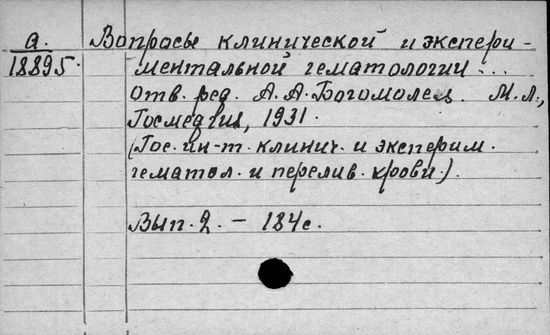 а. Вопросы клинической и экспери-
18895. ментальной гематологии...
Отв. ред. А. А. Богомолец. М.Л.,
Госмедгиз, 1931.
(Гос. ин-т. клинич. и эксперим.
гематол. и перелив. крови.).
Вып. 2. – 184 с.